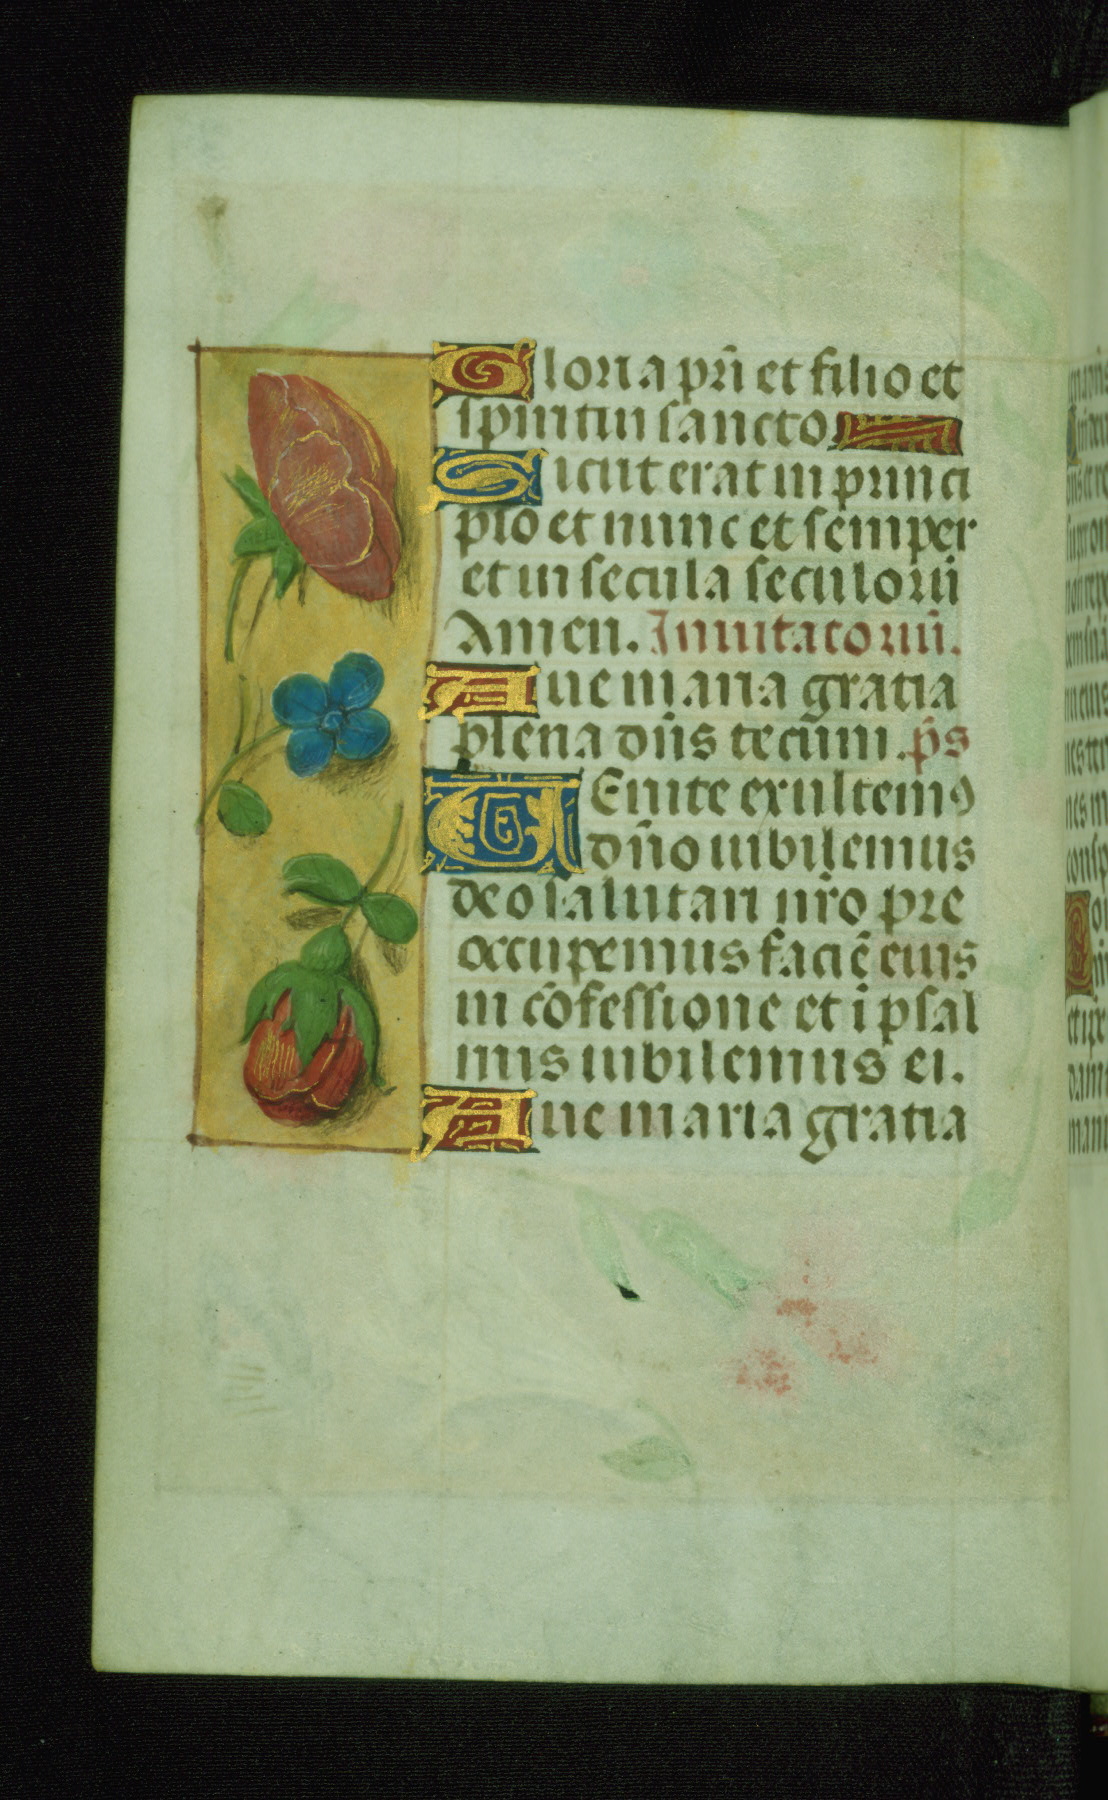 Gloria pr̄i et filio et
spiritui sancto.
Sicut erat in princi
pio et nunc et semper
et in secula seculorū
Amen. Inuitatoriū.
Aue maria gratia
plena dn̄s tecum. p̄s
UEnite exultemꝰ
dn̄o iubilemus
deo salutari nr̄o pre
occupemus faciē eius
in cōfessione et ī psal
mis iubilemus ei.
Aue maria gratia